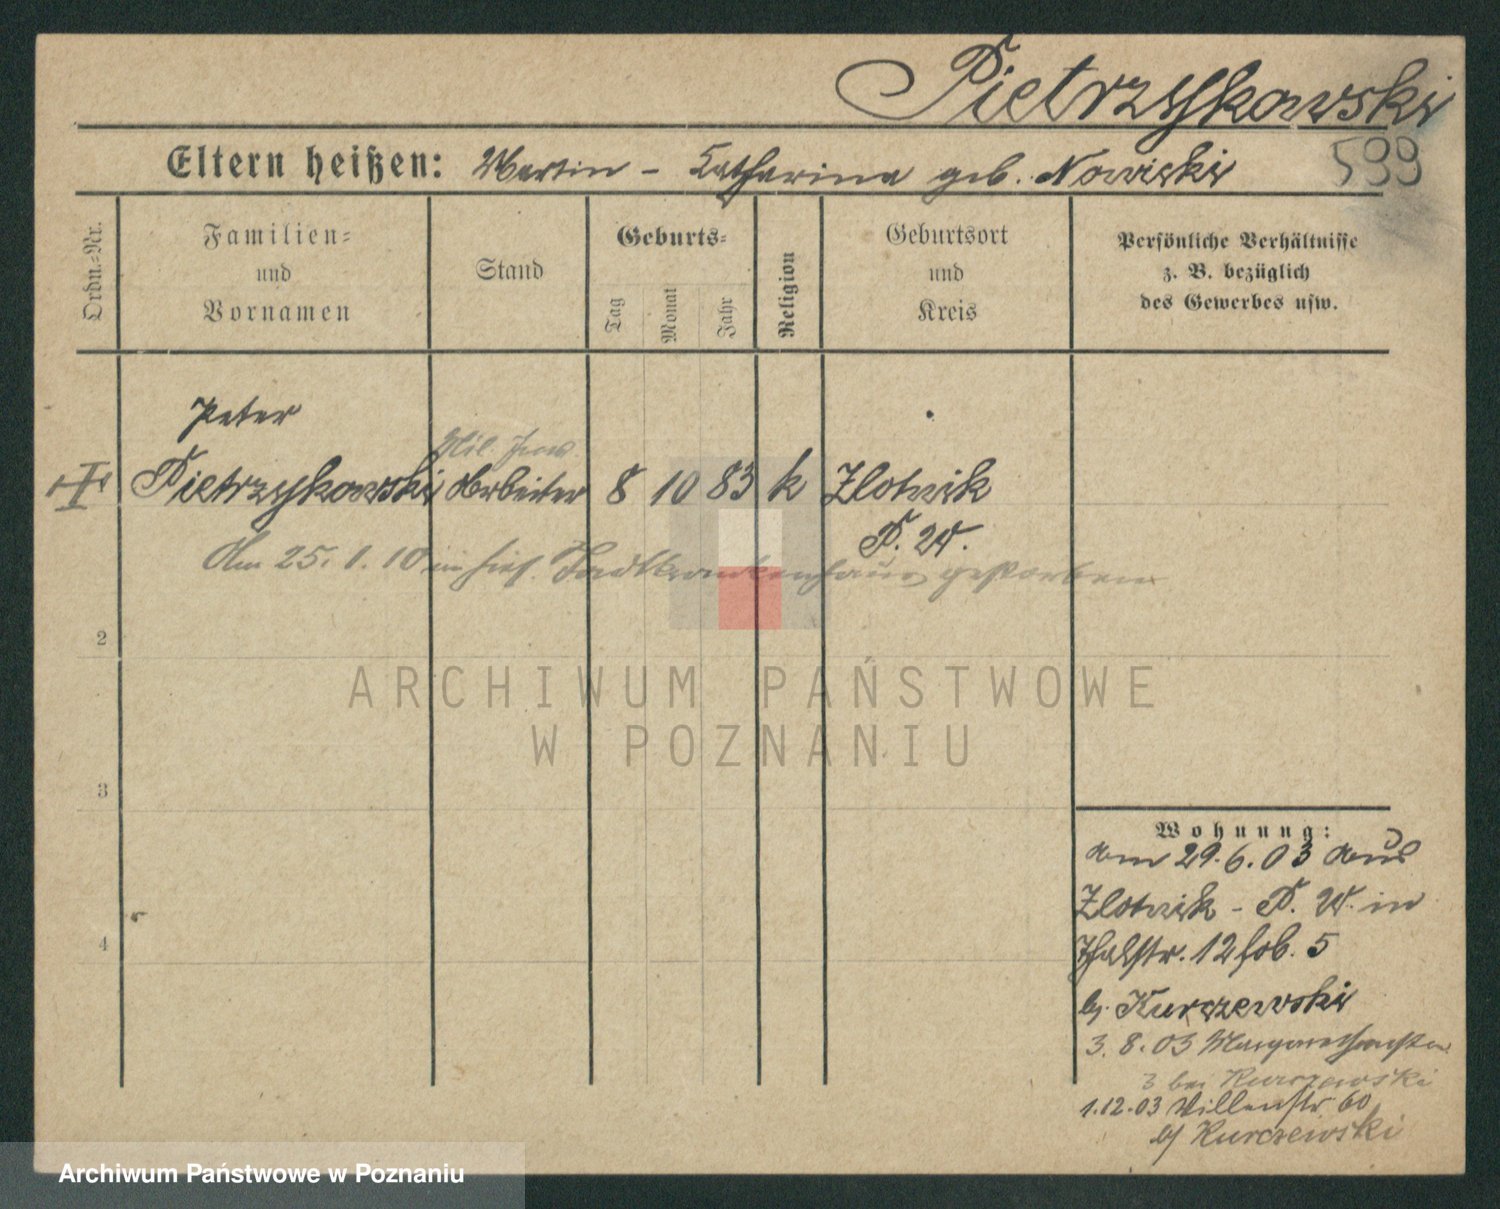 Pietrzykowski
Eltern heißen: Martin - Katharina geb. Nowicki
599
Ordn.-Nr.
Familien-
und
Vornamen
Stand
Geburts-
Tag
Monat
Jahr
Religion
Geburtsort
und
Kreis
Persönliche Verhältnisse
z. B. bezüglich
des Gewerbes usw.
Peter
Mil. Inv.
Pietrzykowski Arbeiter 8 10 83 k Zlotnik
P. W.
Am 25. 1. 10 im hies. Stadtkrankenhaus gestorben
2
3
4
Wohnung:
am 29. 6. 03 aus
Zlotnik - P. W. in
Thalstr. 12 5
bj. Kurczewski
3. 8. 03 Margarethenstr.
3 bei Kurczewski
1. 12. 03 Villenstr 60
bj Kurczewski
ARCHIWUM PAŃSTWOWE
W POZNANIU
Archiwum Państwowe w Poznaniu